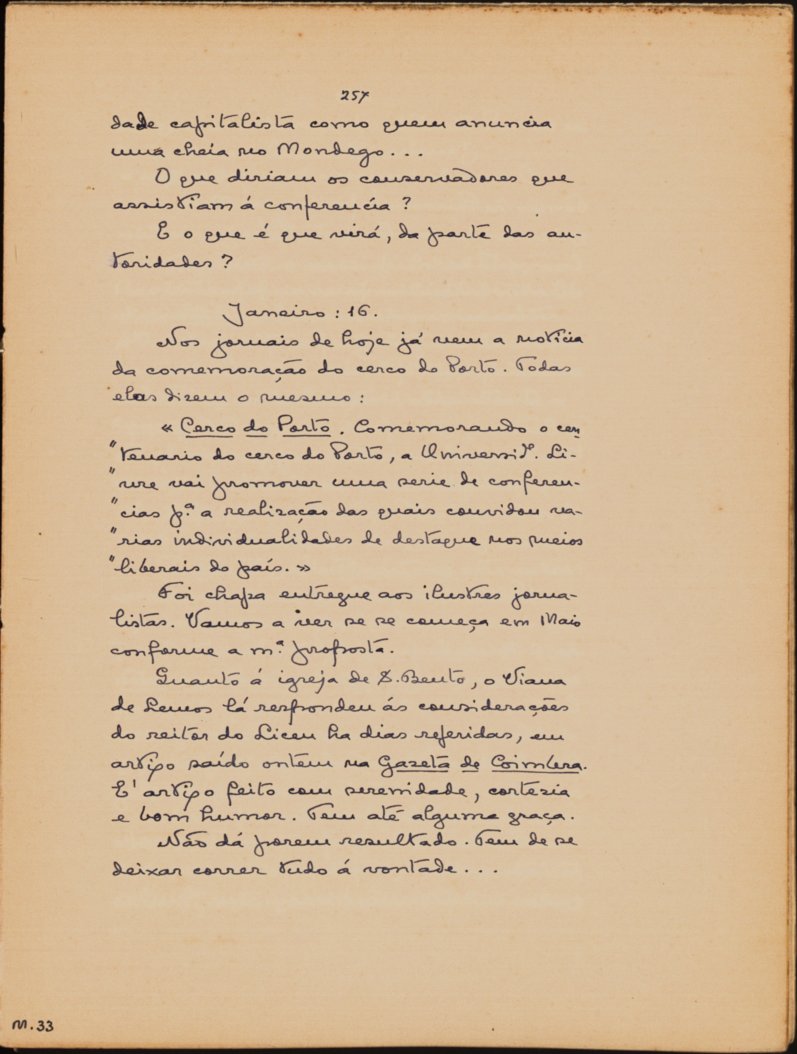 257
dade capitalista como quem anuncia
uma cheia no Mondego...
O que diriam os conservadores que
assistiam á conferencia?
E o que é que virá, da parte das au-
toridades?
Janeiro: 16.
Nos jornais de hoje já vem a noticia
da comemoração do cerco do Porto. Todas
elas dizem o mesmo:
« Cerco do Porto. Comemorando o cen
"tenario do cerco do Porto, a Universid.ᵉ Li-
"vre vai promover uma serie de conferen-
"cias p.ª a realização das quais convidou va-
"rias individualidades de destaque nos meios
"liberais do país. »
Foi chapa entregue aos ilustres jorna-
listas. Vamos a ver se se começa em Maio
conforme a m.ª proposta.
Quanto á igreja de S. Bento, o Viana
de Lemos lá respondeu ás considerações
do reitor do Liceu ha dias referidas, em
artigo saído ontem na Gazeta de Coimbra.
E' artigo feito com serenidade, cortezia
e bom humor. Tem até alguma graça.
Não dá porem resultado. Tem de se
deixar correr tudo á vontade...
M.33